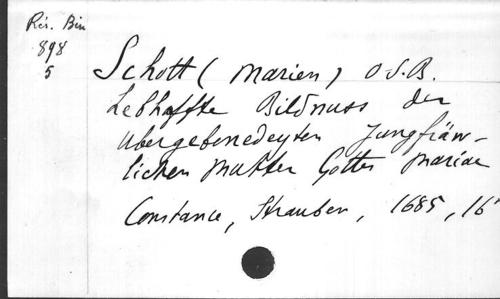 Rés. Bin
898
5
Schott (Marien) O.S.B.
Lebhaffte Bildnuss der
ubergebenedeyten Jungfräw-
lichen Mutter Gottes Mariae
Constance, Strauben, 1685, 16°